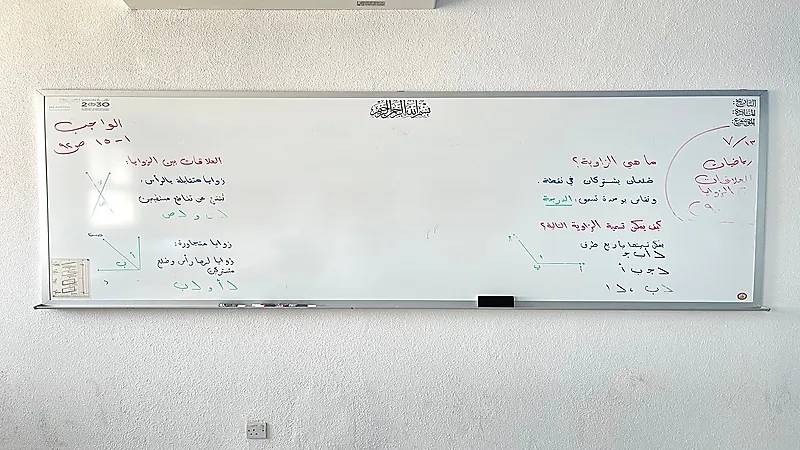 بسم الله الرحمن الرحيم
التاريخ:
المادة:
الموضوع:
٧/١٣
رياضيات
العلاقات
بين الزوايا
ما هي الزاوية؟
ضلعان يشتركان في نقطة.
وتقاس بوحدة تسمى الدرجة
كيف يمكن تسمية الزاوية التالية؟
يمكن تسميتها بأربع طرق
ب
أ
١
العلاقات بين الزوايا:
زوايا متقابلة بالرأس:
تنتج عن تقاطع مستقيمين
زوايا متجاورة:
زوايا لها رأس وضلع
مشتركين
ب
أ
2030
الواجب
١ - ١٥ ص ٩٢